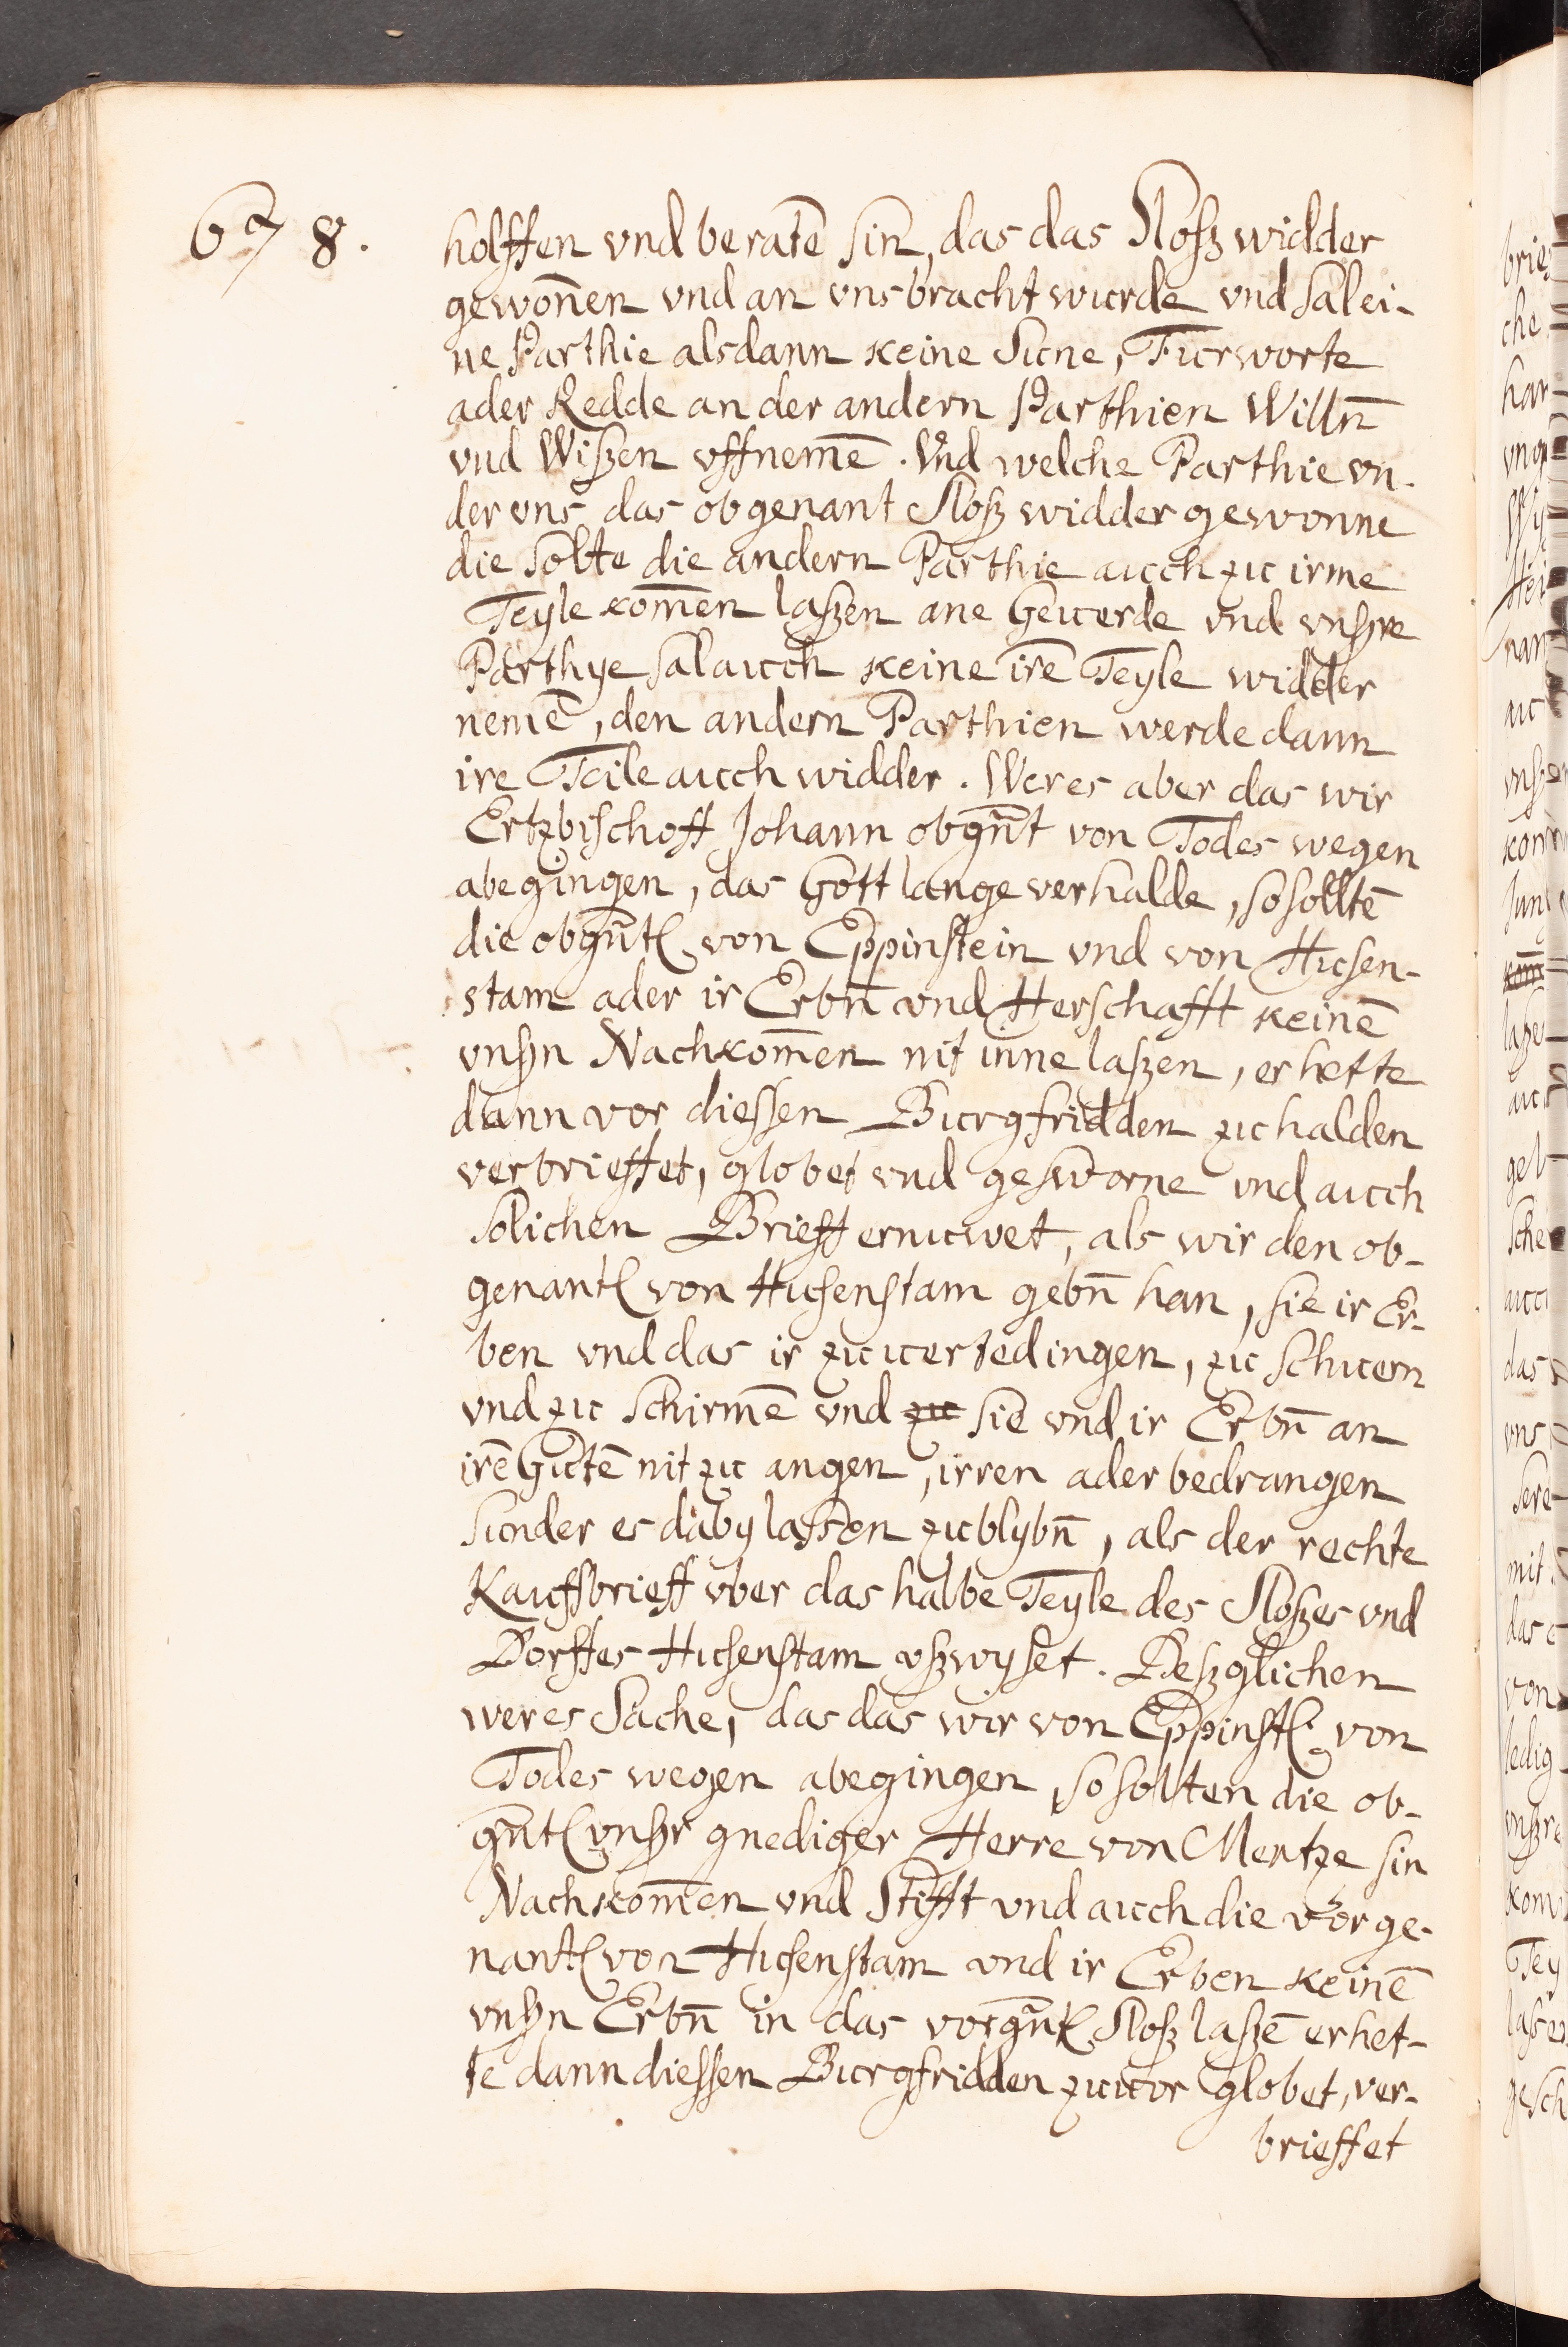 678.
holffen vnd beratē sin, das das Sloß widder
gewon̄en vnd an vns bracht wurde vnd sal ei-
ne Parthie alsdann keine Sune, Furworte
ader Redde an der andern Parthien Willn̄
vnd Wißen vffnemē. Vnd welche Parthie vn-
der vns das obgenant Sloß widder gewonne
die solte die andern Parthie auch zu irme
Teyle kom̄en laßen ane Geuerde vnd vnßre
Parthye sal auch keine irē Teyle widder
nemē, den andern Parthien werde dann
ire Teile auch widder. Wer es aber das wir
Ertzbischoff Johann obgn̄t von Todes wegen
abegingen, das Gott lange verhalde, so soltē
die obgn̄t von Eppinstein vnd von Husen-
stam ader ir Erbn̄ vnd Herschafft keinē
vnßn Nachkom̄en nit inne laßen, er hette
dann vor diessen Burgfridden zu halden
verbrieffet, globet vnd gesworne vnd auch
solichen Brieff ernuwet, als wir den ob-
genant von Husenstam gebn̄ han, sie ir Er-
ben vnd das ir zu uertedingen, zu schuern
vnd zu schirmē vnd zu sie vnd ir Erbn̄ an
irē Gutē nit zu angen, irren ader bedrangen
sunder es daby lassen zu blybn̄, als der rechte
Kauffbrieff vber das halbe Teyle des Sloßes vnd
Dorffes Husenstam vßwyset. Deßglichen
wer es Sache, das das wir von Eppinst von
Todes wegen abegingen, so solten die ob-
gn̄t vnßr gnediger Herre von Mentze sin
Nachkom̄en vnd Stifft vnd auch die vorge-
nant von Husenstam vnd ir Erben keinē
vnßn Erbn̄ in das vorgn̄t Sloß laßē er het-
te dann diessen Burgfridden zuuor globet, ver-
brieffet